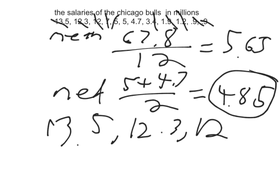 the salaries of the chicago bulls in millions
13.5, 12.3, 12, 7, 5, 5, 4.7, 3.4, 1.9, 1.2, .9, .9
67.8/12 = 5.65
5+4.7/2 = 4.85
13.5, 12.3, 12